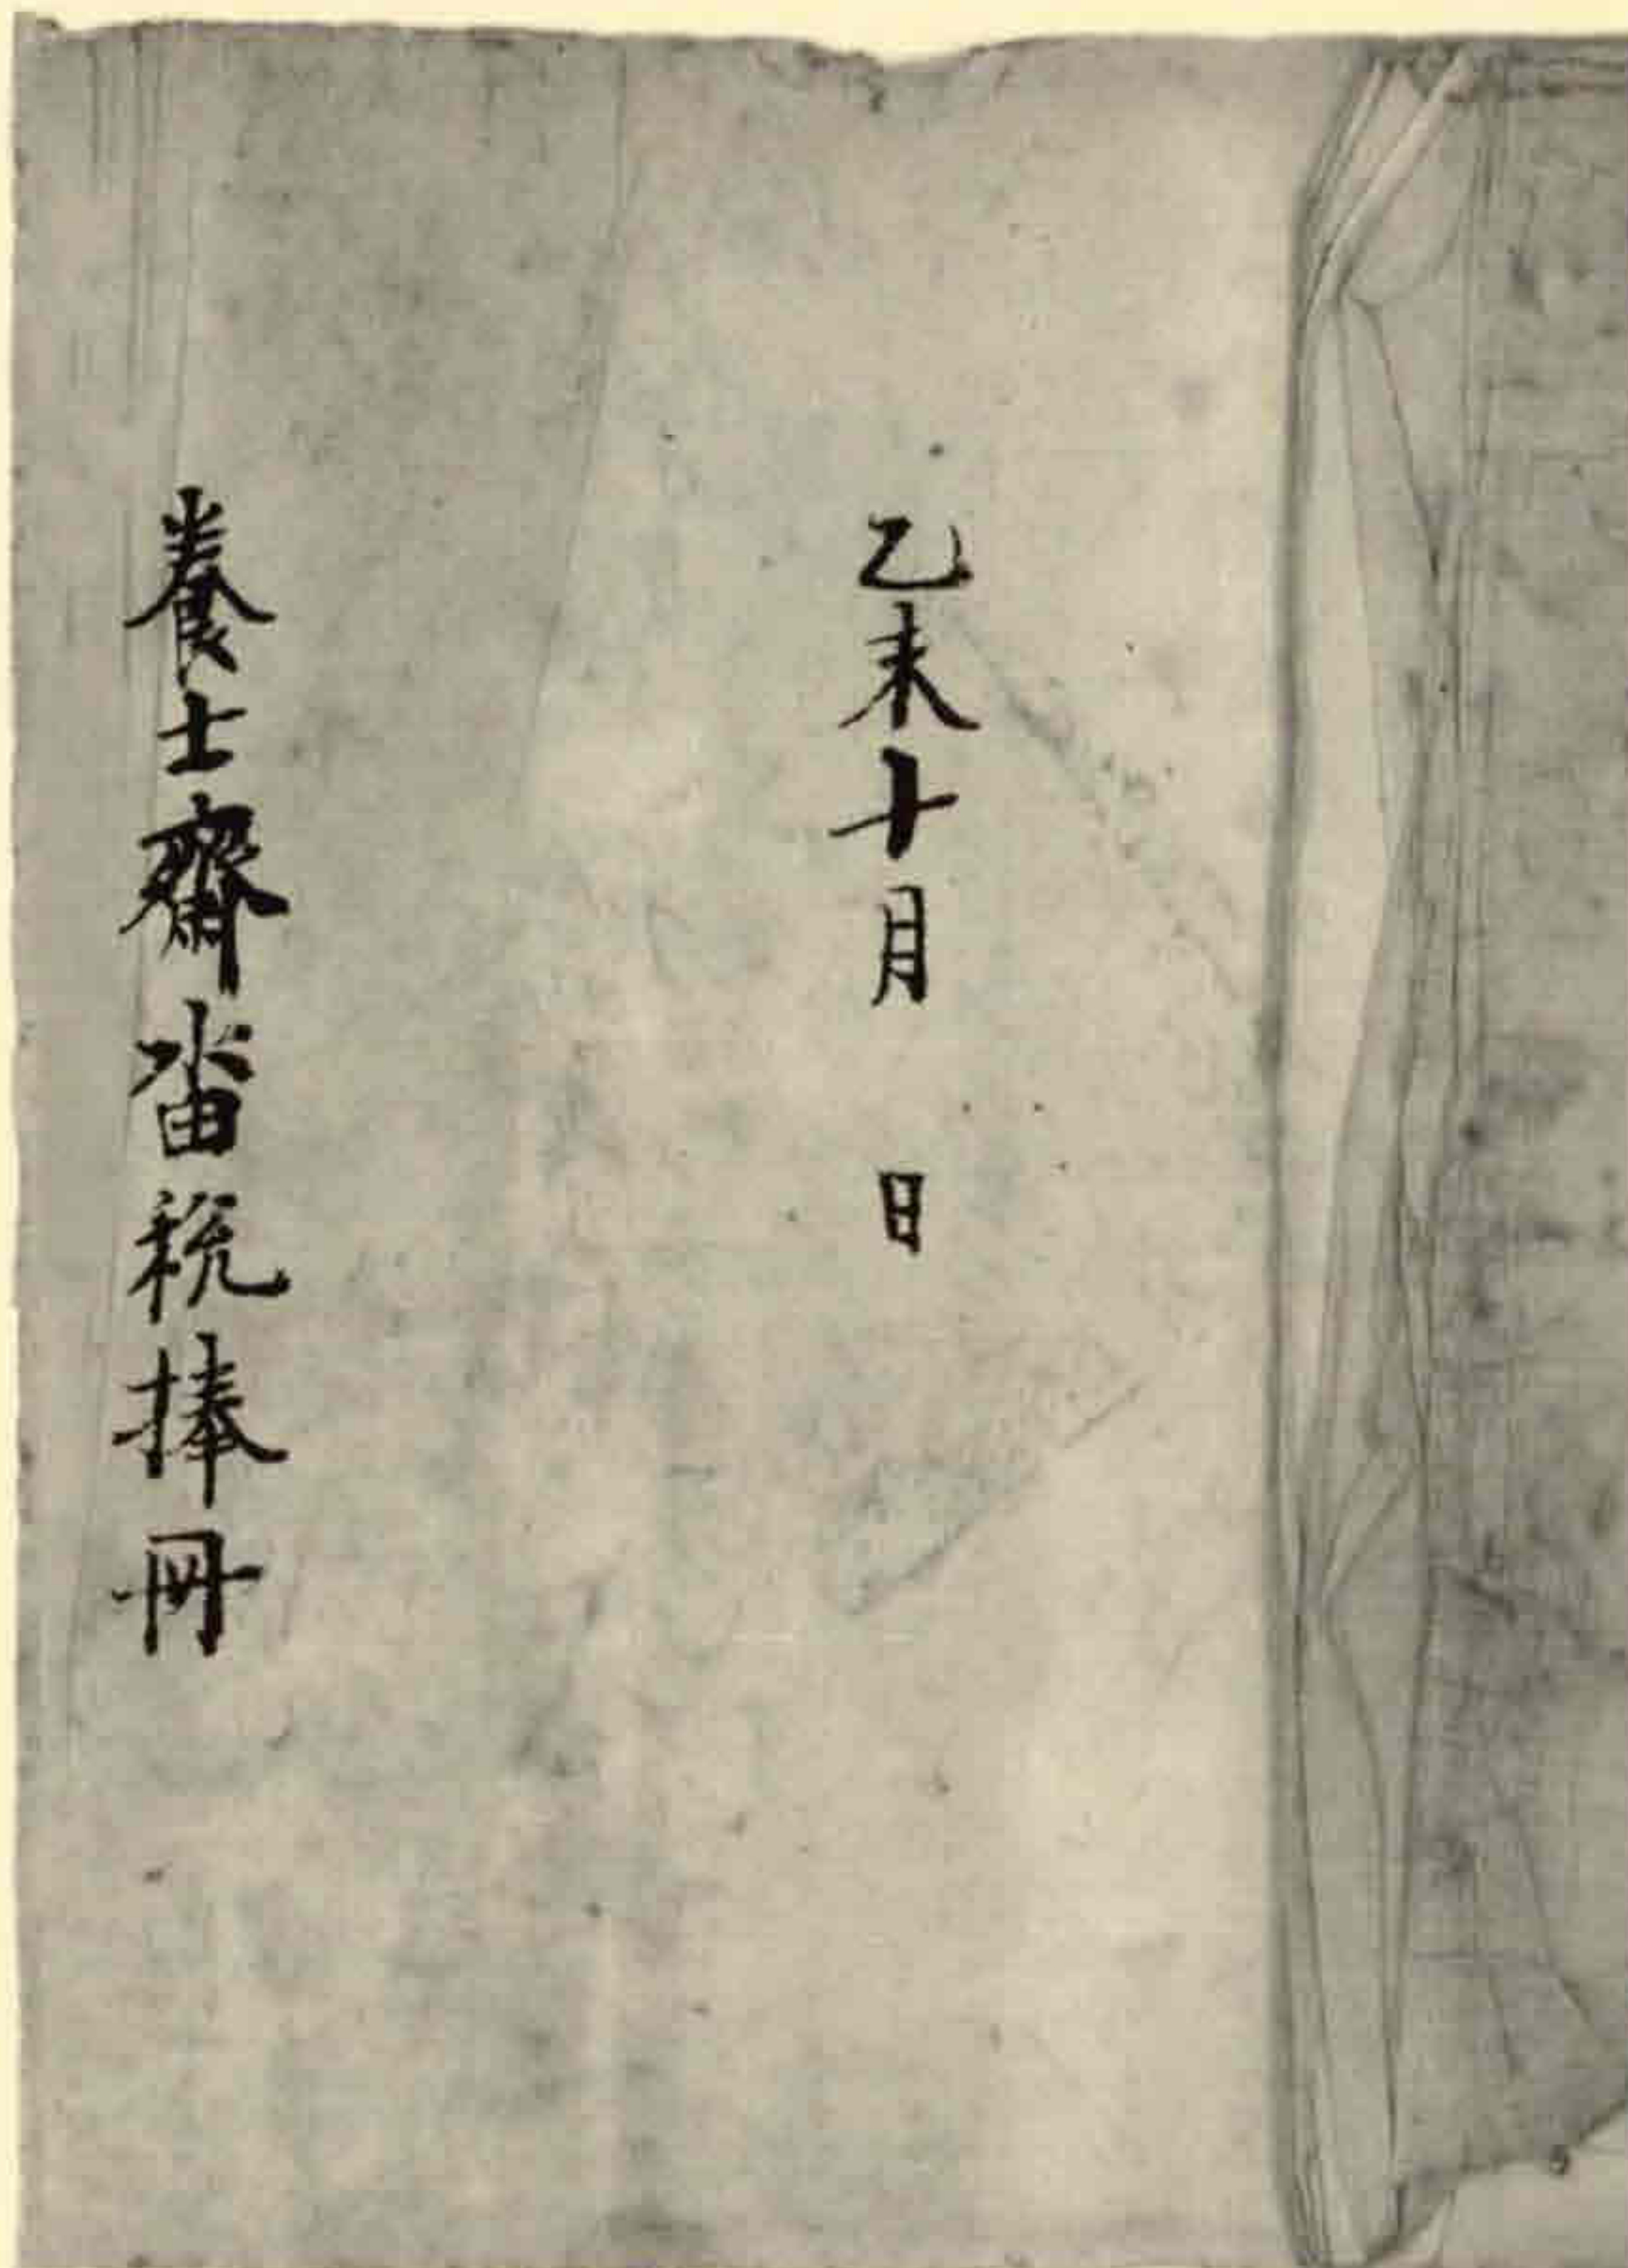 乙未十月 日
養士齋畓稅捧冊